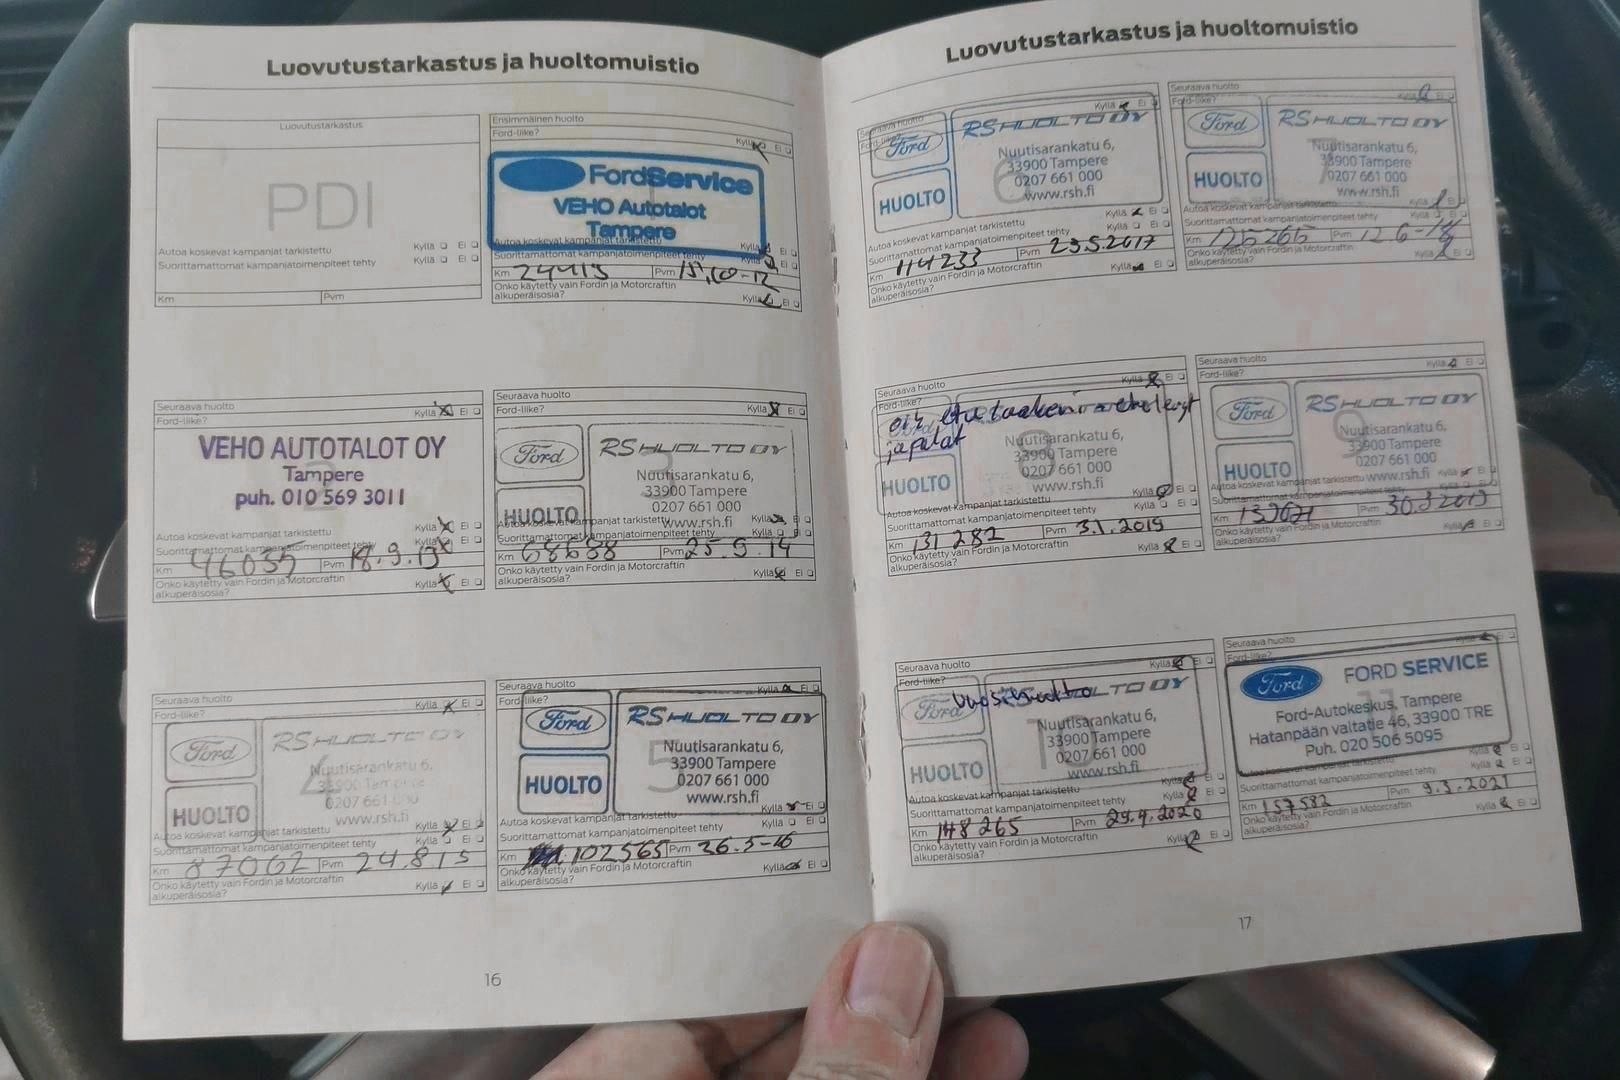 Luovutustarkastus ja huoltomuistio
Luovutustarkastus
PDI
Autoa koskevat kampanjat tarkistettu Kyllä Ei
Suorittamattomat kampanjatoimenpiteet tehty Kyllä Ei
Km Pvm
Ensimmäinen huolto
Ford-liike? Kyllä Ei
1
FordService
VEHO Autotalot
Tampere
Autoa koskevat kampanjat tarkistettu
Suorittamattomat kampanjatoimenpiteet tehty
Km 24413 Pvm 15.10-12
Onko käytetty vain Fordin ja Motorcraftin
alkuperäisosia? Kyllä Ei
Seuraava huolto
Ford-liike? Kyllä Ei
2
VEHO AUTOTALOT OY
Tampere
puh. 010 569 3011
Autoa koskevat kampanjat tarkistettu Kyllä Ei
Suorittamattomat kampanjatoimenpiteet tehty Kyllä Ei
Km 46035 Pvm 18.9.13
Onko käytetty vain Fordin ja Motorcraftin
alkuperäisosia? Kyllä Ei
Seuraava huolto
Ford-liike? Kyllä Ei
3
Ford RS HUOLTO OY
Nuutisarankatu 6,
33900 Tampere
0207 661 000
HUOLTO www.rsh.fi
Autoa koskevat kampanjat tarkistettu Kyllä Ei
Suorittamattomat kampanjatoimenpiteet tehty Kyllä Ei
Km 68688 Pvm 25.9.14
Onko käytetty vain Fordin ja Motorcraftin
alkuperäisosia? Kyllä Ei
Seuraava huolto
Ford-liike? Kyllä Ei
4
Ford RS HUOLTO OY
Nuutisarankatu 6,
33900 Tampere
0207 661 000
HUOLTO www.rsh.fi
Autoa koskevat kampanjat tarkistettu Kyllä Ei
Suorittamattomat kampanjatoimenpiteet tehty Kyllä Ei
Km 87062 Pvm 24.8.15
Onko käytetty vain Fordin ja Motorcraftin
alkuperäisosia? Kyllä Ei
Seuraava huolto
Ford-liike? Kyllä Ei
5
Ford RS HUOLTO OY
Nuutisarankatu 6,
33900 Tampere
0207 661 000
HUOLTO www.rsh.fi
Autoa koskevat kampanjat tarkistettu Kyllä Ei
Suorittamattomat kampanjatoimenpiteet tehty Kyllä Ei
Km 102565 Pvm 26.5-16
Onko käytetty vain Fordin ja Motorcraftin
alkuperäisosia? Kyllä Ei
16
Luovutustarkastus ja huoltomuistio
Seuraava huolto
Ford-liike? Kyllä Ei
6
Ford RS HUOLTO OY
Nuutisarankatu 6,
33900 Tampere
0207 661 000
HUOLTO www.rsh.fi
Autoa koskevat kampanjat tarkistettu Kyllä Ei
Suorittamattomat kampanjatoimenpiteet tehty Kyllä Ei
Km 114233 Pvm 29.5.2017
Onko käytetty vain Fordin ja Motorcraftin
alkuperäisosia? Kyllä Ei
Seuraava huolto
Ford-liike? Kyllä Ei
7
Ford RS HUOLTO OY
Nuutisarankatu 6,
33900 Tampere
0207 661 000
HUOLTO www.rsh.fi
Autoa koskevat kampanjat tarkistettu Kyllä Ei
Suorittamattomat kampanjatoimenpiteet tehty Kyllä Ei
Km 125265 Pvm 12.6-18
Onko käytetty vain Fordin ja Motorcraftin
alkuperäisosia? Kyllä Ei
Seuraava huolto
Ford-liike? Kyllä Ei
ja palat
8
Ford
Nuutisarankatu 6,
33900 Tampere
0207 661 000
HUOLTO www.rsh.fi
Autoa koskevat kampanjat tarkistettu Kyllä Ei
Suorittamattomat kampanjatoimenpiteet tehty
Km 131 282 Pvm 3.1.2019
Onko käytetty vain Fordin ja Motorcraftin
alkuperäisosia? Kyllä Ei
Seuraava huolto
Ford-liike? Kyllä Ei
9
Ford RS HUOLTO OY
Nuutisarankatu 6,
33900 Tampere
0207 661 000
HUOLTO www.rsh.fi
Autoa koskevat kampanjat tarkistettu Kyllä Ei
Suorittamattomat kampanjatoimenpiteet tehty Kyllä Ei
Km Pvm
Onko käytetty vain Fordin ja Motorcraftin
alkuperäisosia? Kyllä Ei
Seuraava huolto
Ford-liike? Kyllä Ei
Vuosihuolto
10
Ford HUOLTO OY
Nuutisarankatu 6,
33900 Tampere
0207 661 000
HUOLTO www.rsh.fi
Autoa koskevat kampanjat tarkistettu Kyllä Ei
Suorittamattomat kampanjatoimenpiteet tehty Kyllä Ei
Km 148 265 Pvm 29.4.2020
Onko käytetty vain Fordin ja Motorcraftin
alkuperäisosia? Kyllä Ei
Seuraava huolto
Ford-liike? Kyllä Ei
11
Ford FORD SERVICE
Ford-Autokeskus, Tampere
Hatanpään valtatie 46, 33900 TRE
Puh. 020 506 5095
Autoa koskevat kampanjat tarkistettu Kyllä Ei
Suorittamattomat kampanjatoimenpiteet tehty Kyllä Ei
Km 157582 Pvm 9.3.2021
Onko käytetty vain Fordin ja Motorcraftin
alkuperäisosia? Kyllä Ei
17